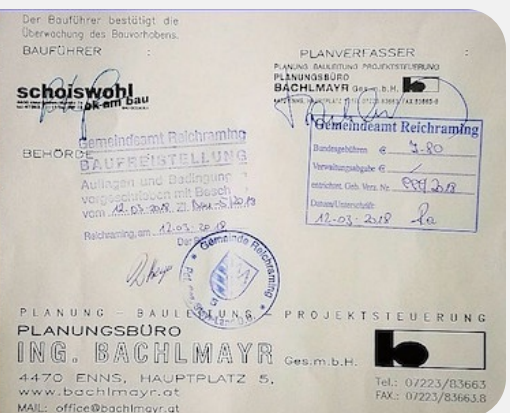 Der Bauführer bestätigt die
Überwachung des Bauvorhabens.
BAUFÜHRER :
PLANVERFASSER :
PLANUNG BAULEITUNG PROJEKTSTEUERUNG
PLANUNGSBÜRO
BACHLMAYR Ges.m.b.H.
schoiswohl
ok-am bau
BEHÖRDE
Gemeindeamt Reichraming
BAUFREISTELLUNG
Auflagen und Bedingung
vorgeschrieben mit Besch
vom 12.03.2018 Zl.
Reichraming, am 12.03.2018
Der
Gemeinde Reichraming
Gemeindeamt Reichraming
Bundesgebühren €
Verwaltungsabgabe €
entrichtet, Geb. Verz. Nr.
Datum/Unterschrift:
12-03-2018
PLANUNG - BAULEITUNG PROJEKTSTEUERUNG
PLANUNGSBÜRO
ING. BACHLMAYR Ges.m.b.H.
4470 ENNS, HAUPTPLATZ 5,
www.bachlmayr.at
MAIL: office@bachlmayr.at
Tel.: 07223/83663
FAX.: 07223/83663.8